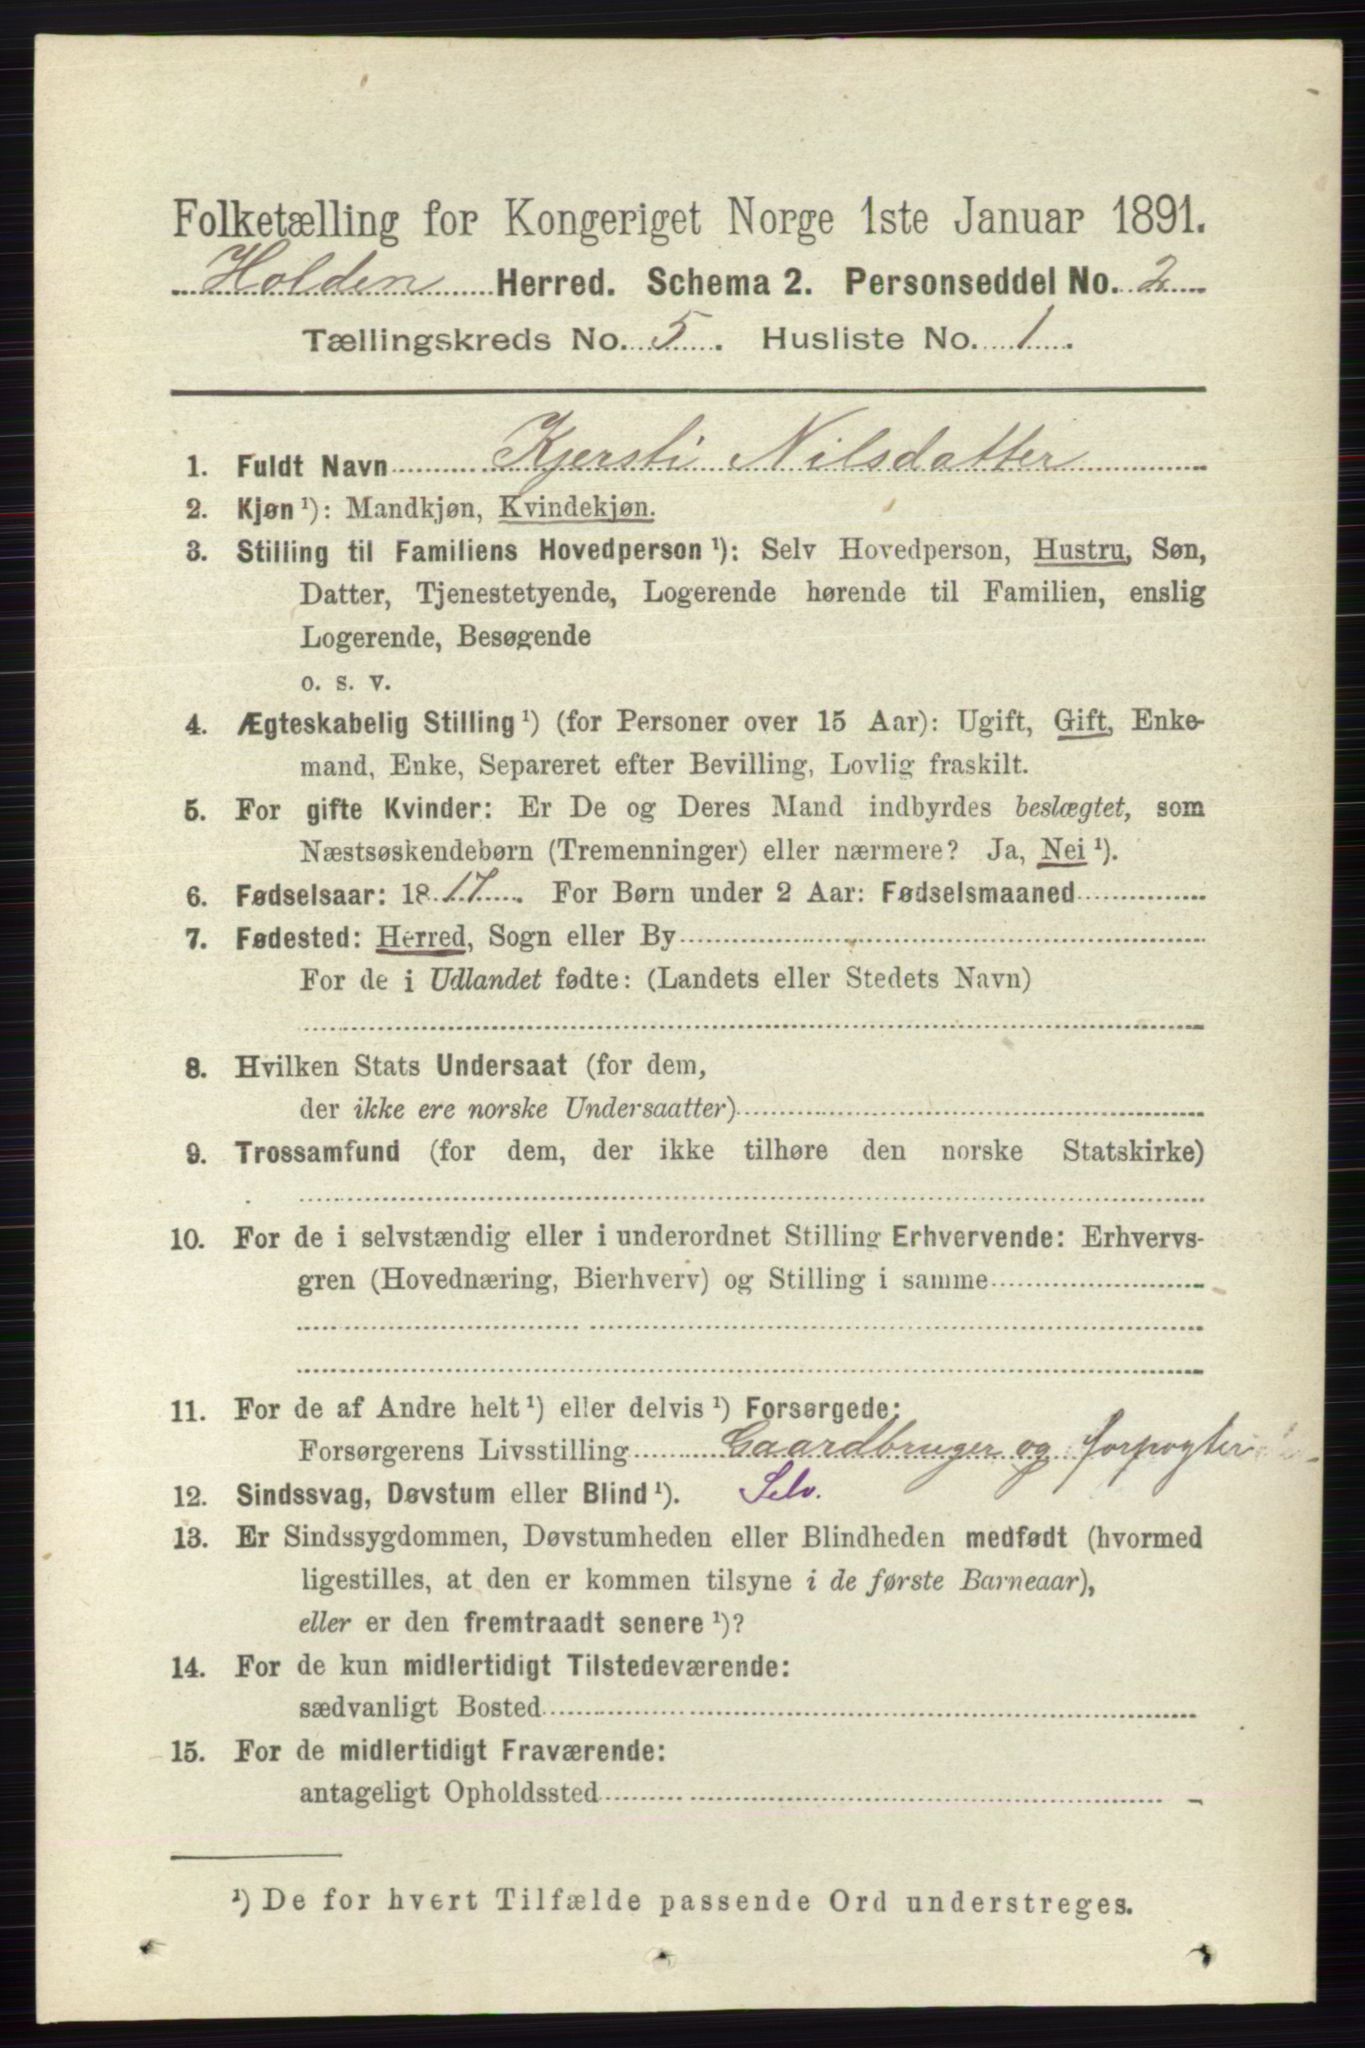 Folketælling for Kongeriget Norge 1ste Januar 1891.
Holden Herred. Schema 2. Personseddel No. 2
Tællingskreds No. 5. Husliste No. 1.
1. Fuldt Navn Kjersti Nilsdatter
2. Kjøn ¹): Mandkjøn, Kvindekjøn.
3. Stilling til Familiens Hovedperson ¹): Selv Hovedperson, Hustru, Søn,
Datter, Tjenestetyende, Logerende hørende til Familien, enslig
Logerende, Besøgende
o. s. v.
4. Ægteskabelig Stilling ¹) (for Personer over 15 Aar): Ugift, Gift, Enke-
mand, Enke, Separeret efter Bevilling, Lovlig fraskilt.
5. For gifte Kvinder: Er De og Deres Mand indbyrdes beslægtet, som
Næstsøskendebørn (Tremenninger) eller nærmere? Ja, Nei ¹).
6. Fødselsaar: 1817. For Børn under 2 Aar: Fødselsmaaned
7. Fødested: Herred, Sogn eller By
For de i Udlandet fødte: (Landets eller Stedets Navn)
8. Hvilken Stats Undersaat (for dem,
der ikke ere norske Undersaatter)
9. Trossamfund (for dem, der ikke tilhøre den norske Statskirke)
10. For de i selvstændig eller i underordnet Stilling Erhvervende: Erhvervs-
gren (Hovednæring, Bierhverv) og Stilling i samme
11. For de af Andre helt ¹) eller delvis ¹) Forsørgede:
Forsørgerens Livsstilling Gaardbruger og forpagter
12. Sindssvag, Døvstum eller Blind ¹). Selv.
13. Er Sindssygdommen, Døvstumheden eller Blindheden medfødt (hvormed
ligestilles, at den er kommen tilsyne i de første Barneaar),
eller er den fremtraadt senere ¹)?
14. For de kun midlertidigt Tilstedeværende:
sædvanligt Bosted
15. For de midlertidigt Fraværende:
antageligt Opholdssted
¹) De for hvert Tilfælde passende Ord understreges.